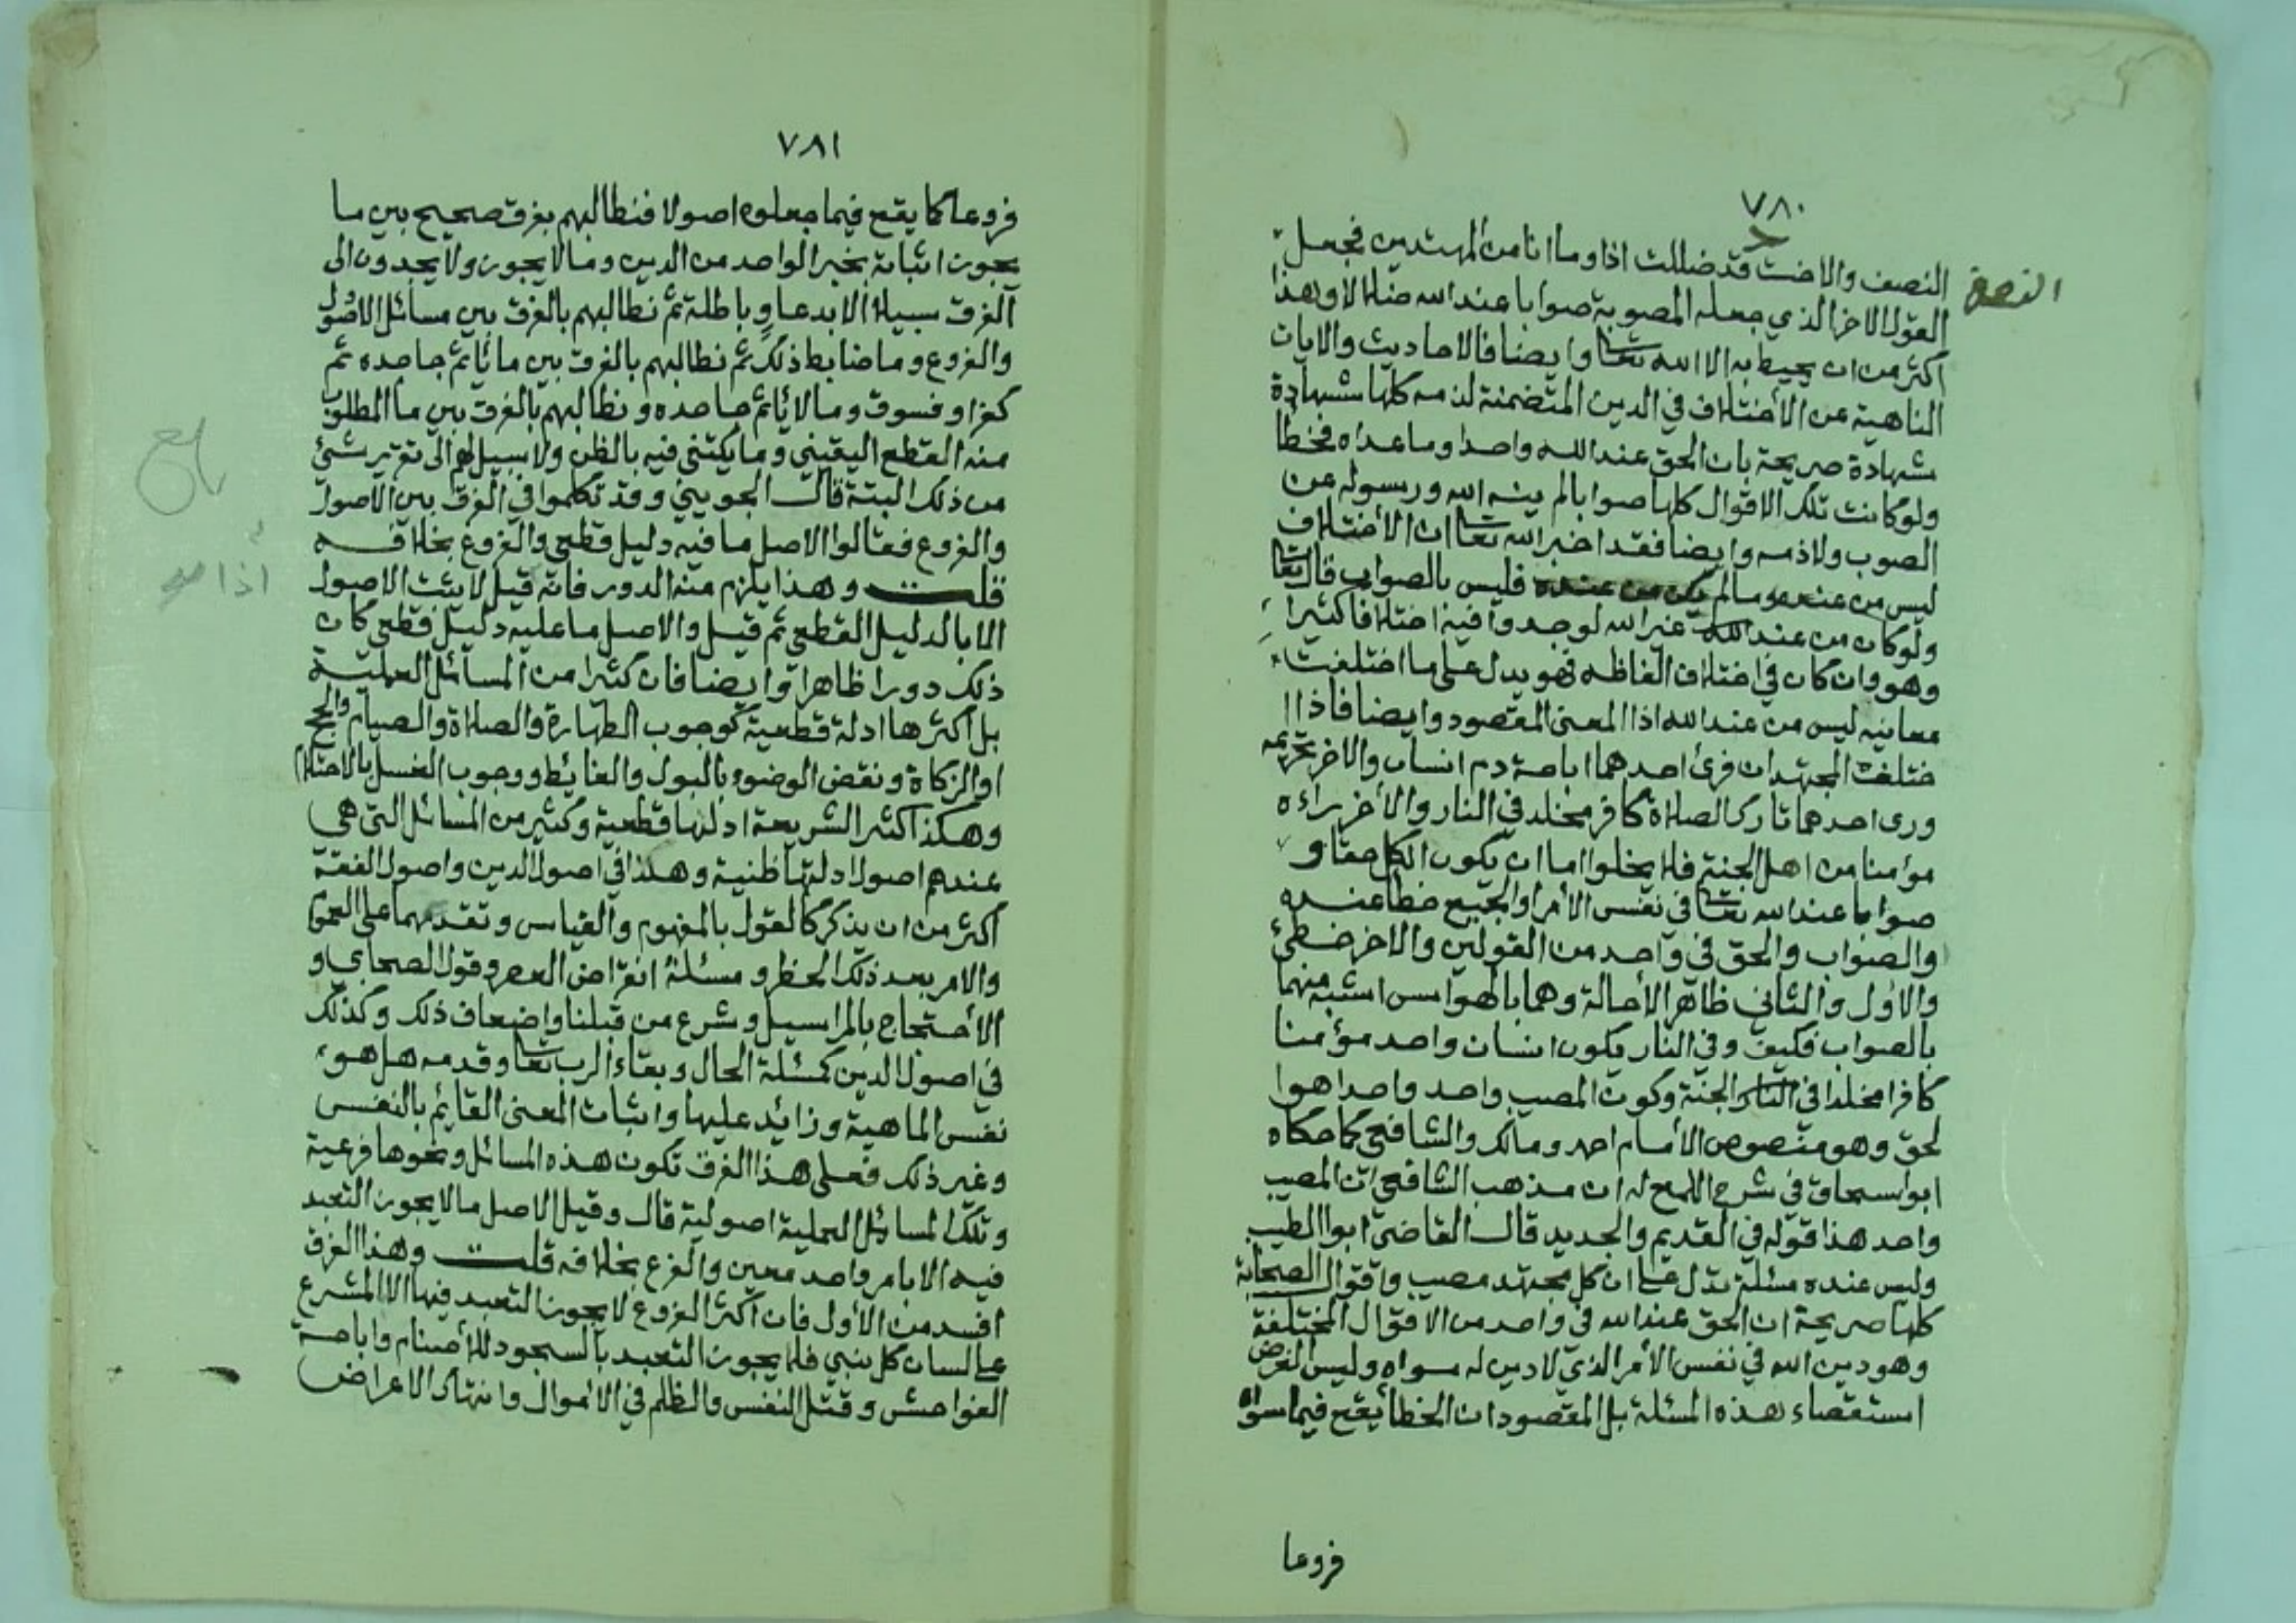 ٧٨٠
النصف والاخت قد ضللت اذا وما انا من المهتدين فجعل
القول الاخر الذي جعله المصوبة صوابا عند الله ضلالا وهذا
اكثر من ان يحيط به الا الله تعا وايضا فالاحاديث والايات
الناهية عن الأختلاف في الدين المتضمنة لذمه كلها شهادة
شهادة صريحة بان الحق عند الله واحدا وما عداه فخطأ
ولو كانت تلك الاقوال كلها صوابا لم ينه الله ورسوله عن
الصوب ولا ذمه وايضا فقد اخبر الله تعا ان الأختلاف
ليس من عنده وما لم يكن من عنده فليس بالصواب قال تعا
ولو كان من عند الله غير الله لوجدوا فيه اختلافا كثيرا
وهو وان كان في اختلاف الفاظه فهو يدل على ما اختلفت
معانيه ليس من عند الله اذا المعنى المقصود وايضا فاذا ا
ختلف المجتهدان فرئ احدهما اباحة دم انسان والاخر تحريمه
ورى احدهما تارك الصلاة كافر مخلد في النار والأخر يراءه
مؤمنا من اهل الجنة فلا يخلوا اما ان يكون الكل حقا و
صوابا عند الله تعا في نفس الأمر او الجميع خطأ عنده
والصواب والحق في واحد من القولين والاخر خطئ
والاول والثاني ظاهر الأحالة وهما بالهوا مس اشبه منهما
بالصواب فكيف وفي النار يكون انسان واحد مؤمنا
كافرا مخلدا في النار والجنة وكون المصيب واحد واحدا هوا
لحق وهو منصوص الأمام احمد ومالك والشافعي كما حكاه
ابو اسحاق في شرح اللمع له ان مذهب الشافعي ان المصيب
واحد هذا قوله في القديم والجديد قال القاضي ابوا الطيب
وليس عنده مسئلة تدل على ان كل مجتهد مصيب واقوال الصحابة
كلها صريحة ان الحق عند الله في واحد من الاقوال المختلفة
وهو دين الله في نفس الأمر الذي لا دين له سواه وليس الغرض
استقصاء هذه المسئلة بل المقصود ان الخطأ يقع فيما سواه
فروعا
٧٨١
فروعا كما يقع فيما جعلوه اصولا فنطالبهم بفرق صحيح بين ما
يجوز اثباته بخبر الواحد من الدين وما لا يجوز ولا يجدون الى
الفرق سبيلا الا بدعاو باطلة ثم نطالبهم بالفرق بين مسائل الاصول
والفروع وما ضابط ذلك ثم نطالبهم بالفرق بين ما يأثم جاحده ثم
كفرا وفسوق وما لا يأثم جاحده ونطالبهم بالفرق بين ما المطلوب
منه القطع اليقيني وما يكتفي فيه بالظن ولا سبيل لهم الى تقرير شئ
من ذلك البتة قال الجويني وقد تكلموا في الفرق بين الاصول
والفروع فقالوا الاصل ما فيه دليل قطعي والفروع بخلافه
قلت وهذا يلزم منه الدور فانه قيل لا يثبت الاصول
الا بالدليل القطعي ثم قيل والاصل ما عليه دليل قطعي كان
ذلك دورا ظاهرا وايضا فان كثيرا من المسائل العملية
بل اكثرها ادلة قطعية كوجوب الطهارة والصلاة والصيام والحج
اوالزكاة ونقض الوضوء بالبول والغائط ووجوب الغسل بالاحتلام
وهكذا اكثر الشريعة ادلتها قطعية وكثير من المسائل التي هي
عندهم اصول ادلتها ظنية وهكذا في اصول الدين واصول الفقه
اكثر من ان يذكر كالقول بالمفهوم والقياس وتقدمهما على العموم
والامر بعد ذلك الحظر ومسئلة انقراض العصر وقول الصحابي و
الأحتجاج بالمراسيل وشرع من قبلنا واضعاف ذلك وكذلك
في اصول الدين كمسئلة الحال وبقاء الرب تعا وقدمه هل هو
نفس الماهية وزائد عليها واثبات المعنى القائم بالنفس
وغير ذلك فعلى هذا الفرق تكون هذه المسائل ونحوها فرعية
وتلك المسائل العملية اصولية قال وقيل الاصل ما لا يجوز التعبد
فيه الا بامر واحد معين والفرع بخلافه قلت وهذا الفرق
افسد من الأول فان اكثر الفروع لا يجوز التعبد فيها الا المشرع
على لسان كل نبي فلا يجوز التعبد بالسجود للأصنام واباحة
الفواحش وقتل النفس والظلم في الاموال وانتهاك الاعراض